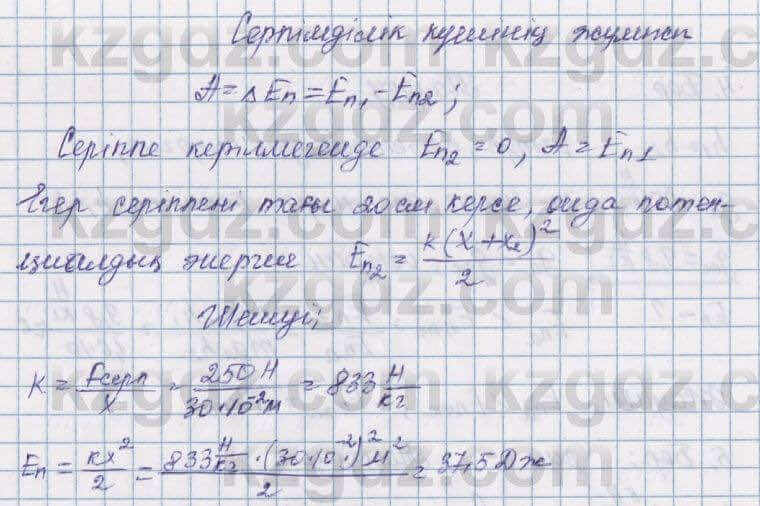 Серпімділік күшінің жұмысы
A = ΔEп = Eп₁ - Eп2;
Серіппе керілмегенде Eп₂ = 0, A = Eп1
Егер серіппені тағы 20см керсе, онда потен-
циалдық энергия Eп₂ = k(x+x₂)² / 2
Шешуі;
K = Fсерп / x = 250Н / 30·10⁻²м = 833 Н/кг
Eп = kx² / 2 = 833 Н/кг · (30·10⁻²)² м² / 2 = 37,5Дж
kzgdz.com